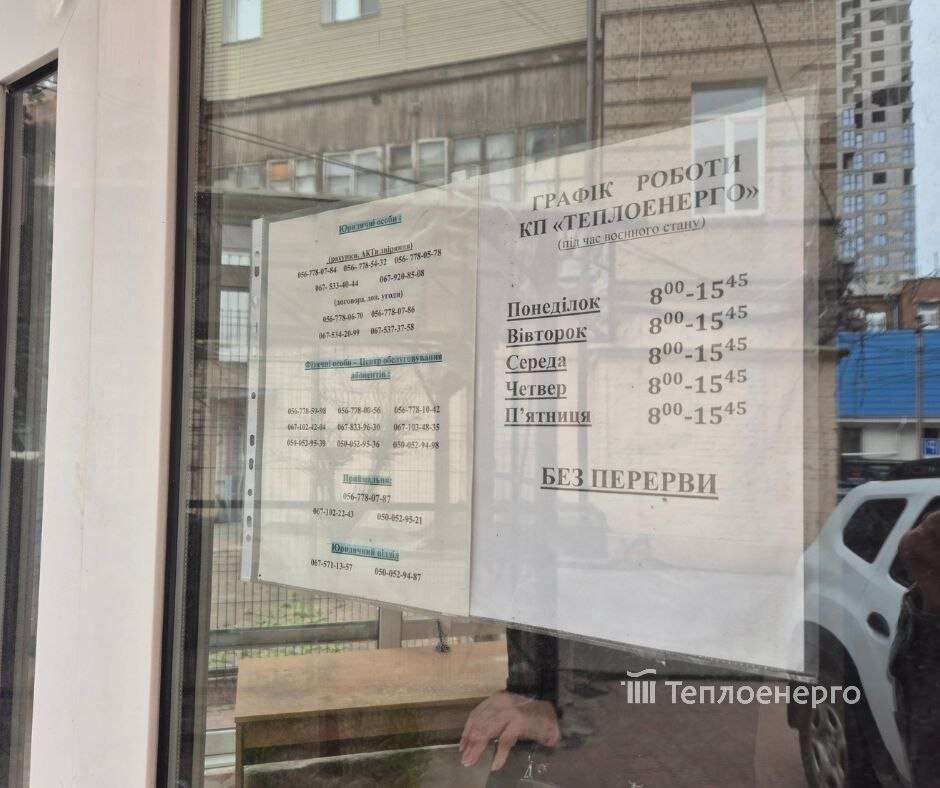 Юридичні особи :
(рахунки, АКТи звіряння)
056-778-07-84 056- 778-54-32 056-778-05-78
067- 533-40-44 067-920-85-08
(договора, дод. угоди)
056-778-06-70 056-778-07-86
067-534-20-99 067-537-37-58
Фізичні особи - Центр обслуговування
абонентів :
056-778-59-98 056-778-00-56 056-778-10-42
067-102-42-04 067-833-96-30 067-103-48-35
050-052-95-39 050-052-95-36 050-052-94-98
Приймальня:
056-778-07-87
067-102-22-43 050-052-95-21
Юридичний відділ
067-571-13-57 050-052-94-87
ГРАФІК РОБОТИ
КП «ТЕПЛОЕНЕРГО»
(під час воєнного стану)
Понеділок 8⁰⁰-15⁴⁵
Вівторок 8⁰⁰-15⁴⁵
Середа 8⁰⁰-15⁴⁵
Четвер 8⁰⁰-15⁴⁵
П'ятниця 8⁰⁰-15⁴⁵
БЕЗ ПЕРЕРВИ
Теплоенерго